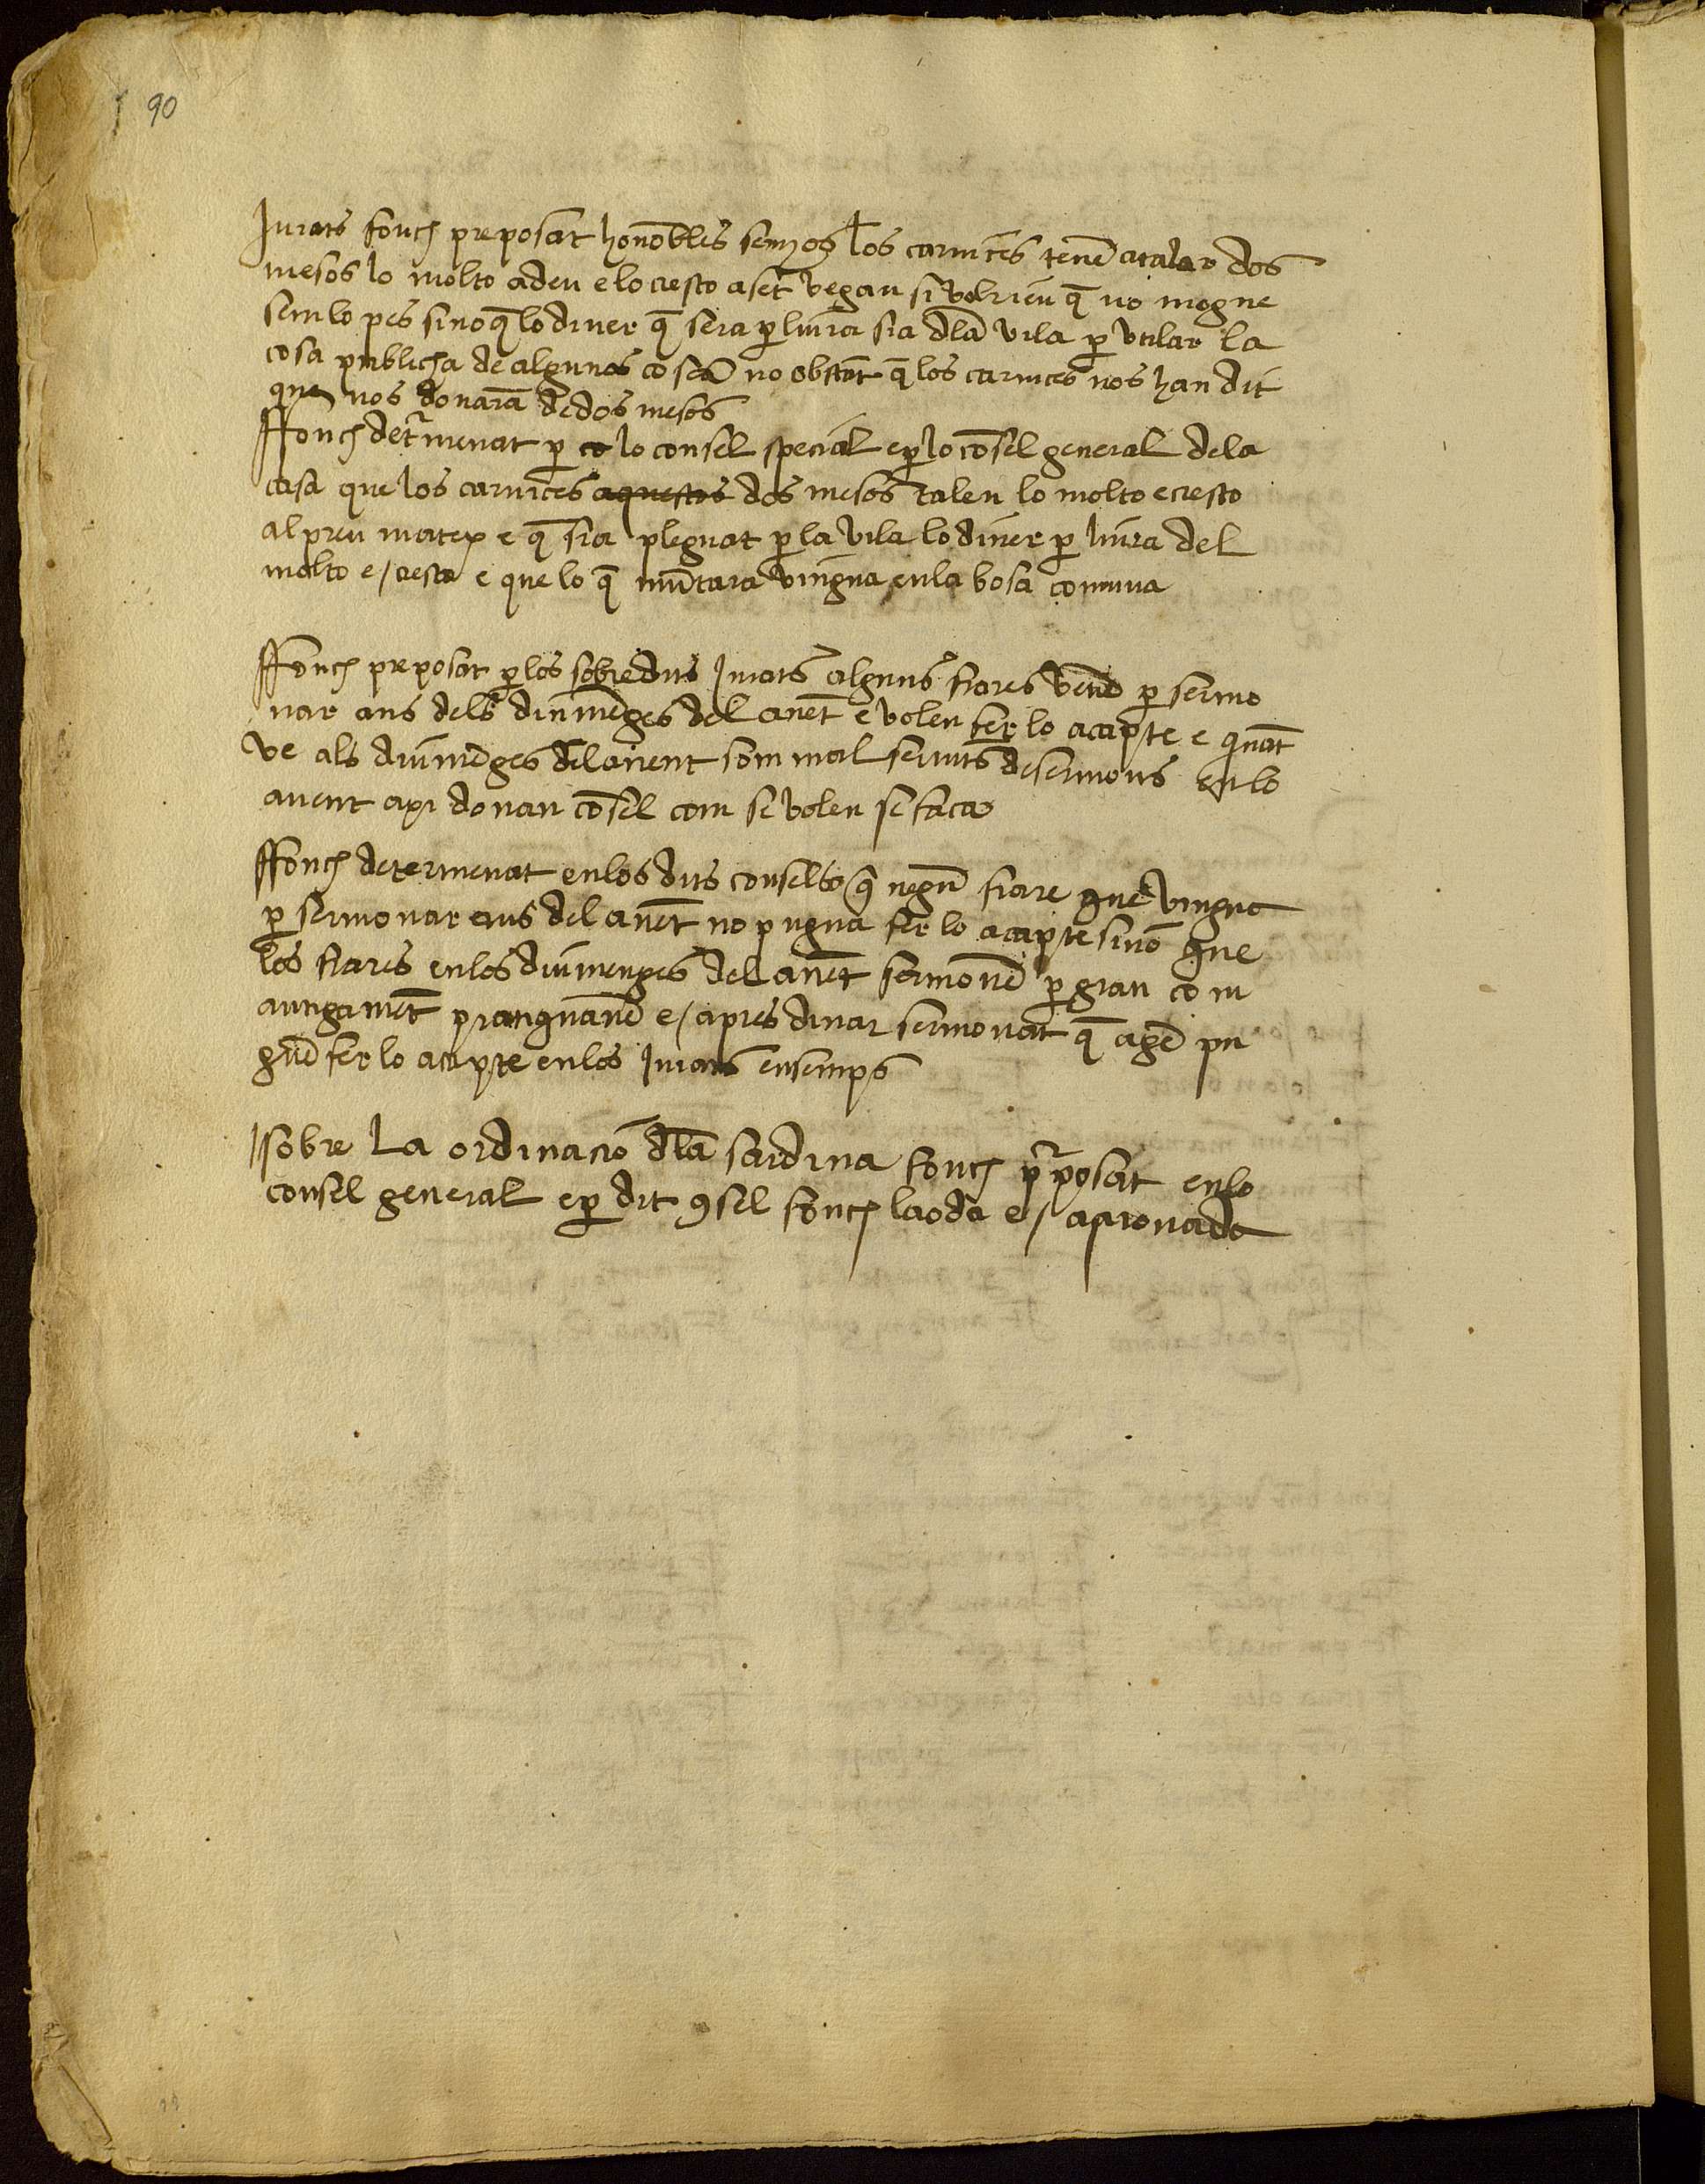 90
Jurats fonch preposat honobles senyos Los carnices tenē atalar dos
mesos lo molto adeu e lo cresto aset vegan si volrieu q̄ no mogne
sem lo pes sino q̄ lo diner q̄ sera p̱ liura sia dla vila p̱ vtilar la
cosa publicha de algunas cosea no obstāt q̄ los carnices nos han dit
que nos donarā de dos mesos
Ffonch det̓menat p̱ co lo consel special e p̱ lo cōsel general de la
casa que los carnices aquestos dos mesos talen lo molto e cresto
al preu matex e q̄ sia pleguat p̱ la vila lo diner p̱ liura del
molto e / cresto e que lo q̄ mūtara vingua en la bosa comuna
Ffonch preposat p̱ los sobredits Jurats alguns frares venē p̱ sermo
nar ans dels diumēges del auēt e volen fer lo acapte e quāt
ve als diumēges del auent som mal seruits de sermons en lo
auent axi donau cōsel com se volen se faca
Ffonch determenat en los dits consells q̄ negū frare que vingua
p̱ sermonar ans del auēt no pugua fer lo acapte sinō que
los frares en los diumenges del auēt sermonē p̱ gran com
antigamēt pratiquauē e / apres dinar sermonat q̄ agē pu
guē fer lo acapte en los Jurats ensemps
/ sobre La ordinacio dla sardina fonch p̓posat en lo
consel general e p̱ dit ꝯsel fonch laoda e / aprouada